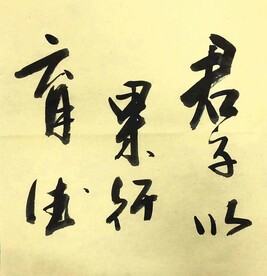 君子以
果行
育德